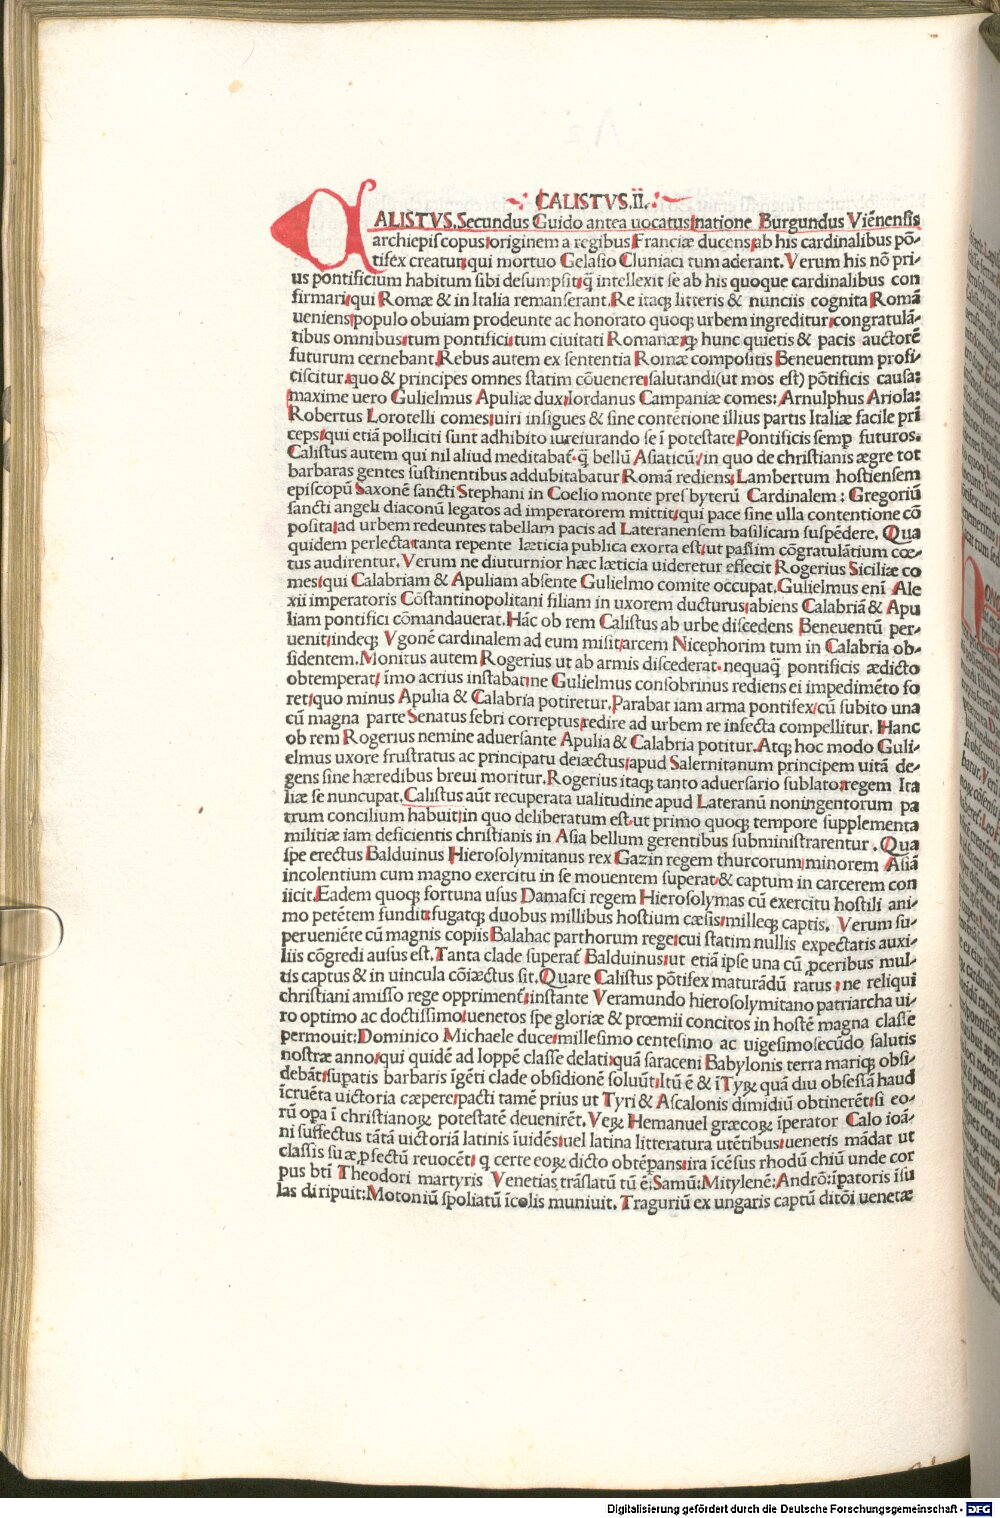 CALISTVS.II.
CALISTVS.Secundus Guido antea uocatus natione Burgundus Viēnensis
archiepiscopus originem a regibus Franciæ ducens ab his cardinalibus pō-
tifex creatur qui mortuo Gelasio Cluniaci tum aderant. Verum his nō pri-
us pontificium habitum sibi desumpsit q̄ intellexit se ab his quoque cardinalibus con
firmari qui Romæ & in Italia remanserant. Re itaq; litteris & nunciis cognita Romā
ueniens populo obuiam prodeunte ac honorato quoq; urbem ingreditur congratulā-
tibus omnibus tum pontifici tum ciuitati Romanæ ꝙ hunc quietis & pacis auctorē
futurum cernebant. Rebus autem ex sententia Romæ compositis Beneuentum profi-
ciscitur quo & principes omnes statim cōuenere salutandi (ut mos est) pōtificis causa:
maxime uero Gulielmus Apuliæ dux Iordanus Campaniæ comes: Arnulphus Ariola:
Robertus Lorotelli comes uiri insignes & sine contētione illius partis Italiæ facile pri
ceps qui etiā polliciti sunt adhibito iureiurando se ī potestate Pontificis semꝑ futuros.
Calistus autem qui nil aliud meditabat̄ q̄ bellū Asiaticū in quo de christianis ægre tot
barbaras gentes sustinentibus addubitabatur Romā rediens Lambertum hostiensem
episcopū Saxonē sancti Stephani in Coelio monte presbyterū Cardinalem: Gregoriū
sancti angeli diaconū legatos ad imperatorem mittit qui pace sine ulla contentione cō
posita ad urbem redeuntes tabellam pacis ad Lateranensem basilicam suspēdere. Qua
quidem perlecta tanta repente læticia publica exorta est ut passim cōgratulātium cœ-
tus audirentur. Verum ne diuturnior hæc læticia uideretur effecit Rogerius Siciliæ co
mes qui Calabriam & Apuliam absente Gulielmo comite occupat. Gulielmus enī Ale
xii imperatoris Cōstantinopolitani filiam in uxorem ducturus abiens Calabriā & Apu
liam pontifici cōmandauerat. Hāc ob rem Calistus ab urbe discedens Beneuentū per-
uenit indeq; Vgonē cardinalem ad eum misit arcem Nicephorim tum in Calabria ob-
sidentem. Monitus autem Rogerius ut ab armis discederat nequaq̄ pontificis ædicto
obtemperat īmo acrius instabat ne Gulielmus consobrinus rediens ei impedimēto fo
ret quo minus Apulia & Calabria potiretur. Parabat iam arma pontifex cū subito una
cū magna parte Senatus febri correptus redire ad urbem re infecta compellitur. Hanc
ob rem Rogerius nemine aduersante Apulia & Calabria potitur. Atq; hoc modo Guli-
elmus uxore frustratus ac principatu deiæctus apud Salernitanum principem uitā de-
gens sine hæredibus breui moritur. Rogerius itaq; tanto aduersario sublato regem Ita
liæ se nuncupat. Calistus aūt recuperata ualitudine apud Lateranū noningentorum pa
trum concilium habuit in quo deliberatum est ut primo quoq; tempore supplementa
militiæ iam deficientis christianis in Asia bellum gerentibus subministrarentur. Qua
spe erectus Balduinus Hierosolymitanus rex Gazin regem thurcorum minorem Asiā
incolentium cum magno exercitu in se mouentem superat & captum in carcerem con
iicit. Eadem quoq; fortuna usus Damasci regem Hierosolymas cū exercitu hostili ani-
mo petētem fundit fugatq; duobus millibus hostium cæsis milleq; captis. Verum su-
perueniēte cū magnis copiis Balahac parthorum rege cui statim nullis expectatis auxi-
liis cōgredi ausus est. Tanta clade superat̄ Balduinus ut etiā ipse una cū ꝓceribus mul-
tis captus & in uincula cōiæctus sit. Quare Calistus pōtifex maturādū ratus ne reliqui
christiani amisso rege opprimenr̄ instante Veramundo hierosolymitano patriarcha ui-
ro optimo ac doctissimo uenetos spe gloriæ & prœmii concitos in hostē magna classe
permouit: Dominico Michaele duce millesimo centesimo ac uigesimosecūdo salutis
nostræ anno qui quidē ad Ioppē classe delati quā saraceni Babylonis terra mariq; obsi-
debāt supatis barbaris īgēti clade obsidionē soluūt Itū ē & ī Tyꝝ quā diu obsessā haud
īcruēta uictoria cæpere pacti tamē prius ut Tyri & Ascalonis dimidiū obtinerēt si eo-
rū opa ī christianoꝝ potestatē deuenirēt. Veꝝ Hemanuel græcoꝝ īperator Calo ioā-
ni suffectus tātā uictoriā latinis īuidēs uel latina litteratura utētibus uenetis mādat ut
classis suæ ꝓfectū reuocēt q certe eoꝝ dicto obtēpans ira īcēsus rhodū chiū unde cor
pus bt̄i Theodori martyris Venetias trāslatū tū ē: Samū: Mitylenē: Andrō: īpatoris īsu
las diripuit: Motoniū spoliatū īcolis muniuit. Traguriū ex ungaris captū ditōi uenetæ
Digitalisierung gefördert durch die Deutsche Forschungsgemeinschaft - DFG